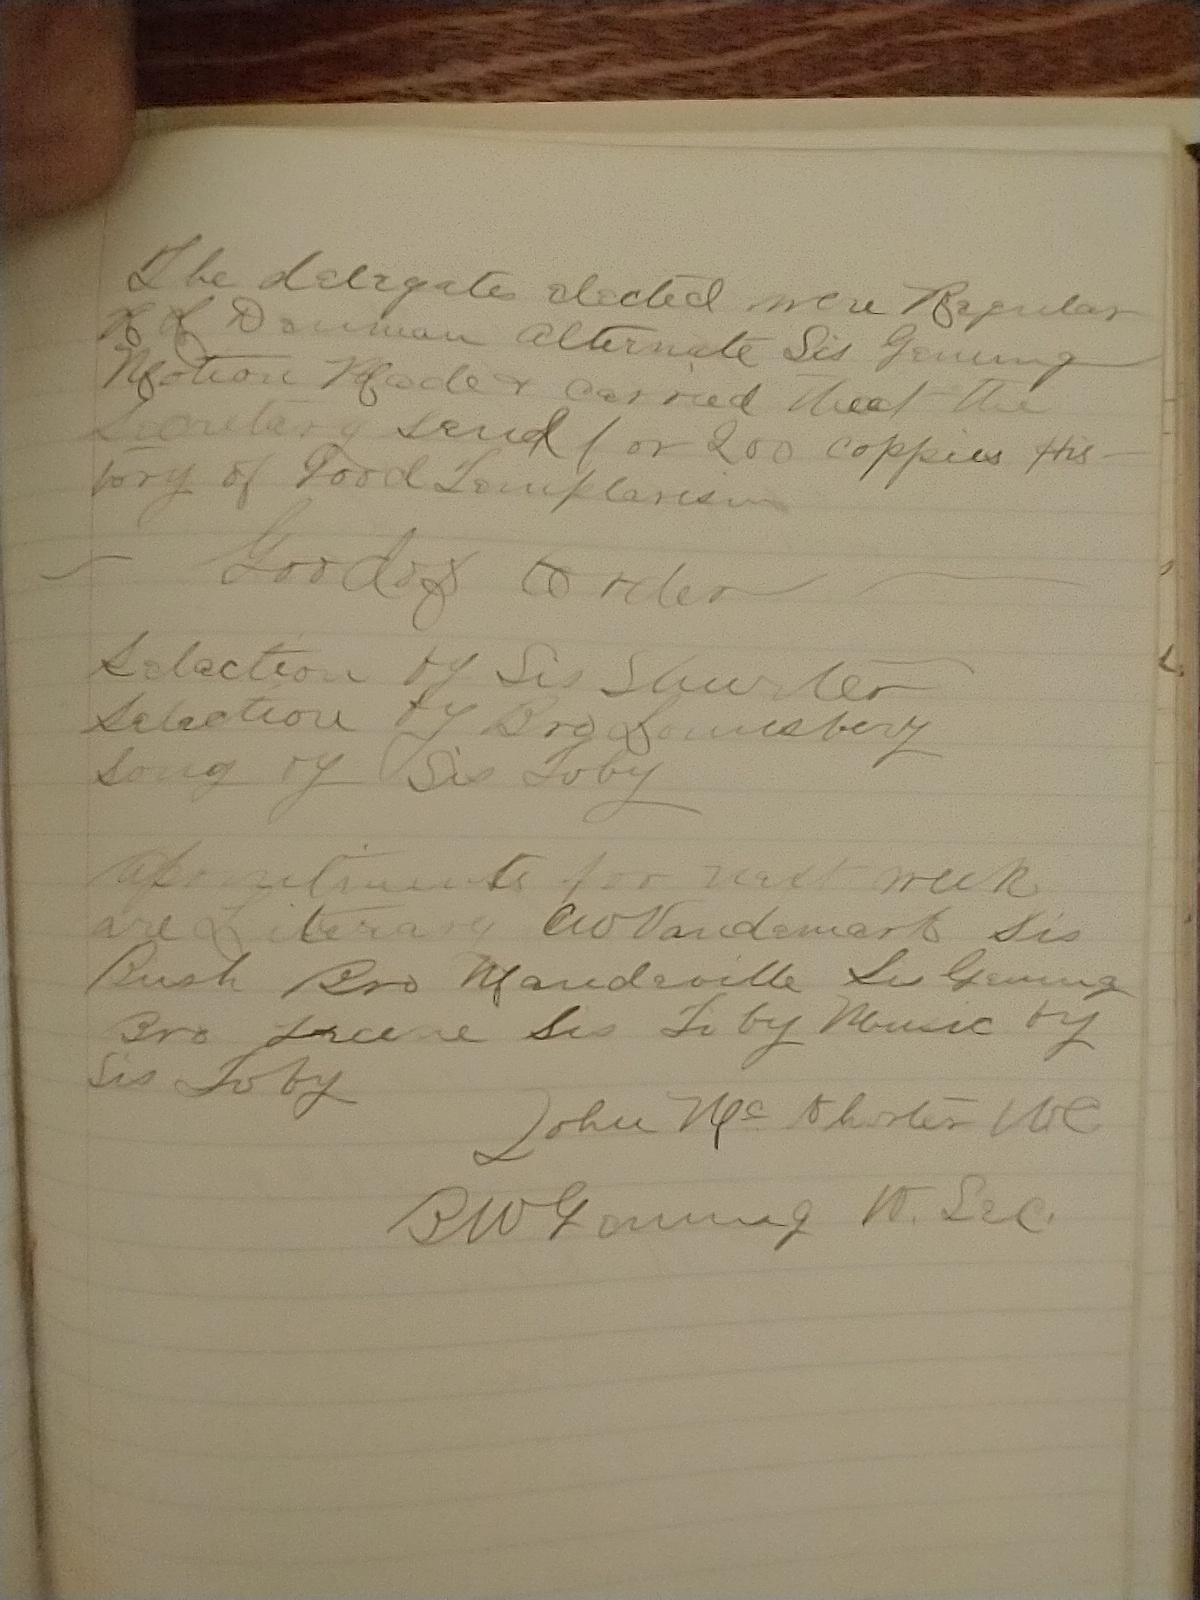 The delegates elected were Regular
Denman Alternate Sis Genung
Motion Made & carried that the
Secretary send for 200 coppies His-
tory of Good Templarism
Good of the order
Selection by Sis Shurter
Selection by Bro Lounsbery
Song by Sis Toby
for next week
are Literary CW Vandemark Sis
Rush Bro Mandeville Sis Genung
Bro Greene Sis Toby Music by
Sis Toby
John Mc Shorter WC
BW Genung W. Sec.